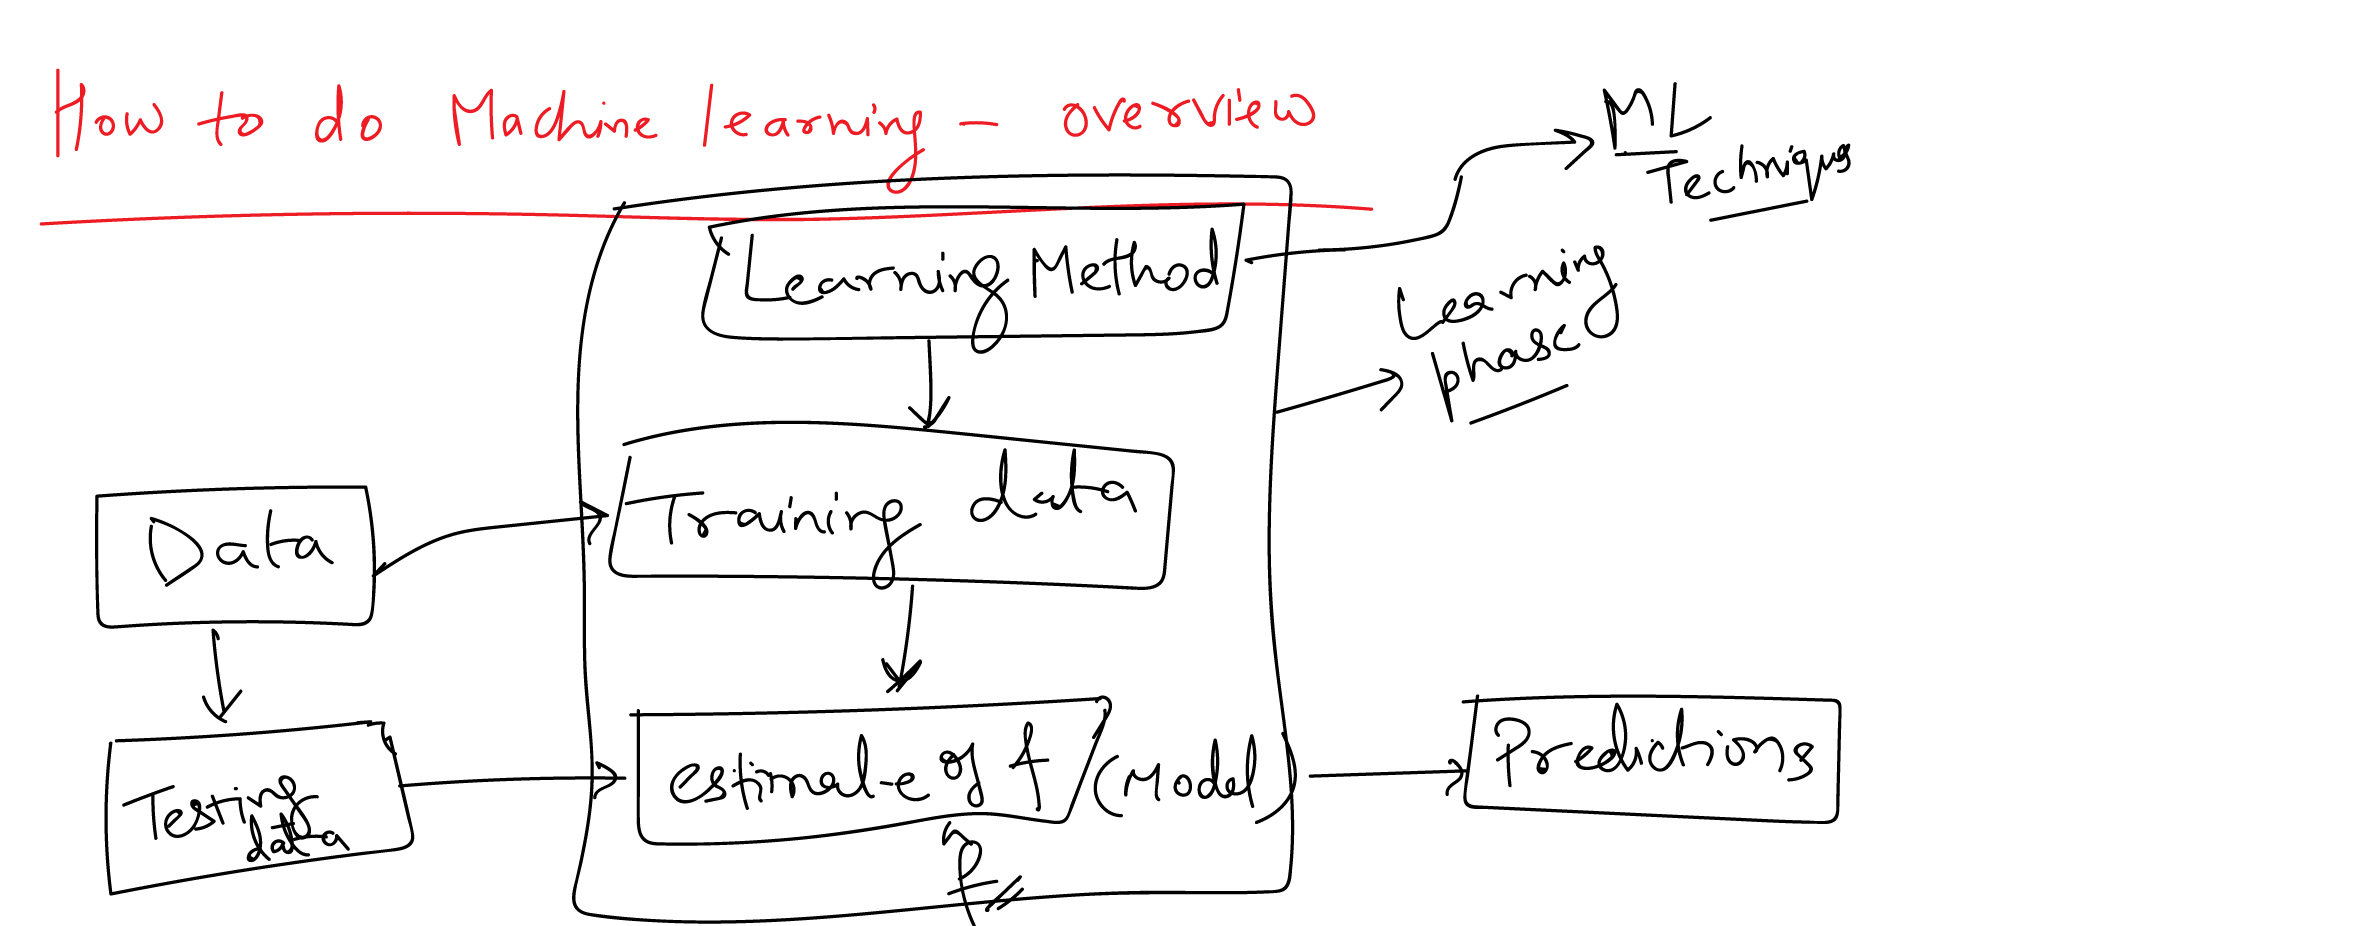 How to do Machine learning - overview
ML
Techniques
Learning Method
Learning
phase
Training data
Data
Testing
data
estimate of f (Model)
Predictions
f̂